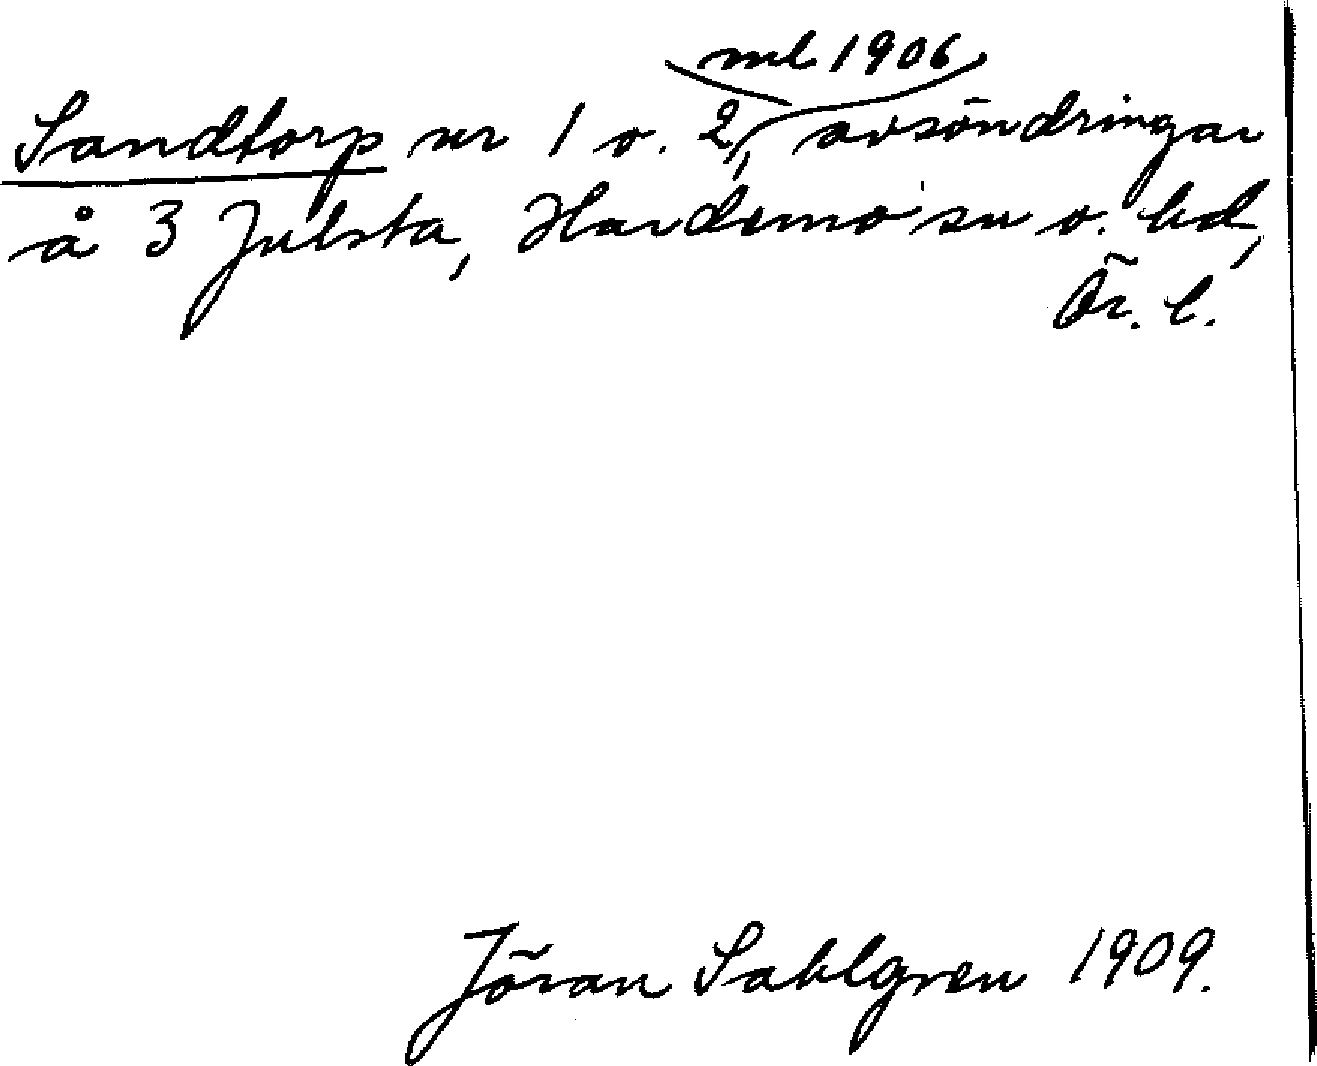 ml 1906
Sandtorp nr 1 o. 2, avsöndringar
å 3 Julsta, Hardemo sn o. hd,
Ör. l.
Jöran Sahlgren 1909.